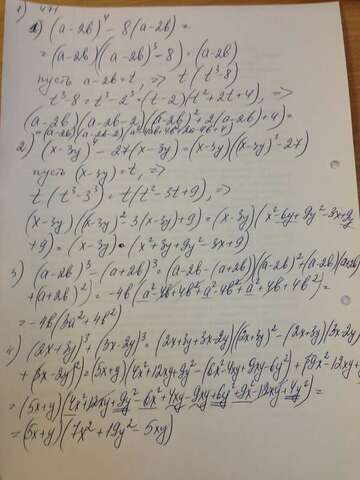 1) 471
1) (a-2b)⁴ - 8(a-2b) =
= (a-2b)((a-2b)³-8) = (a-2b)
пусть a-2b=t, => t(t³-8)
t³-8 = t³-2³ = (t-2)(t²+2t+4), =>
(a-2b)(a-2b-2)((a-2b)²+2(a-2b)+4) =
= (a-2b)(a-2b-2)(a²-4ab+4b²+2a-4b+4)
2) (x-3y)⁴ - 27(x-3y) = (x-3y)((x-3y)³-27)
пусть (x-3y) = t, =>
t(t³-3³) = t(t²-3t+9), =>
(x-3y)((x-3y)²-3(x-3y)+9) = (x-3y)(x²-6y+9y²-3x+9y
+9) = (x-3y)·(x²+3y+9y²-3x+9)
3) (a-2b)³ - (a+2b)³ = (a-2b-(a+2b))((a-2b)²+(a-2b)(a+2b)
+(a+2b)²) = -4b(a²-4ab+4b²+a²-4b²+a²+4ab+4b²) =
= -4b(3a²+4b²)
4) (2x+3y)³+(3x-2y)³ = (2x+3y+3x-2y)((2x+3y)²-(2x+3y)(3x-2y)
+(3x-2y)²) = (5x+y)(4x²+12xy+9y²-(6x²-4xy+9xy-6y²)+(9x²-12xy+
= (5x+y)(4x²+12xy+9y²-6x²+4xy-9xy+6y²+9x²-12xy+4y²) =
= (5x+y)(7x²+19y²-5xy)